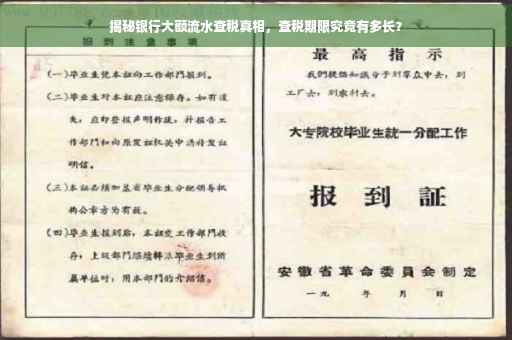 揭秘银行大额流水查税真相，查税期限究竟有多长？
报到注意事项
(一)毕业生凭本证向工作部门报到。
(二)毕业生对本证应注意保存。如有遗
失，应即登报声明作废，并报告工
作部门和向原发证机关申请补发证
明信。
(三)本证必须加盖省毕业生分配领导机
构公章方为有效。
(四)毕业生报到后，本证交工作部门收
存；上级部门
毕业生到所
属单位时，用本部门的介绍信。
最高指示
我们提倡知识分子到群众中去，到
工厂去，到农村去。
大专院校毕业生统一分配工作
报到証
安徽省革命委员会制定
一九 年 月 日